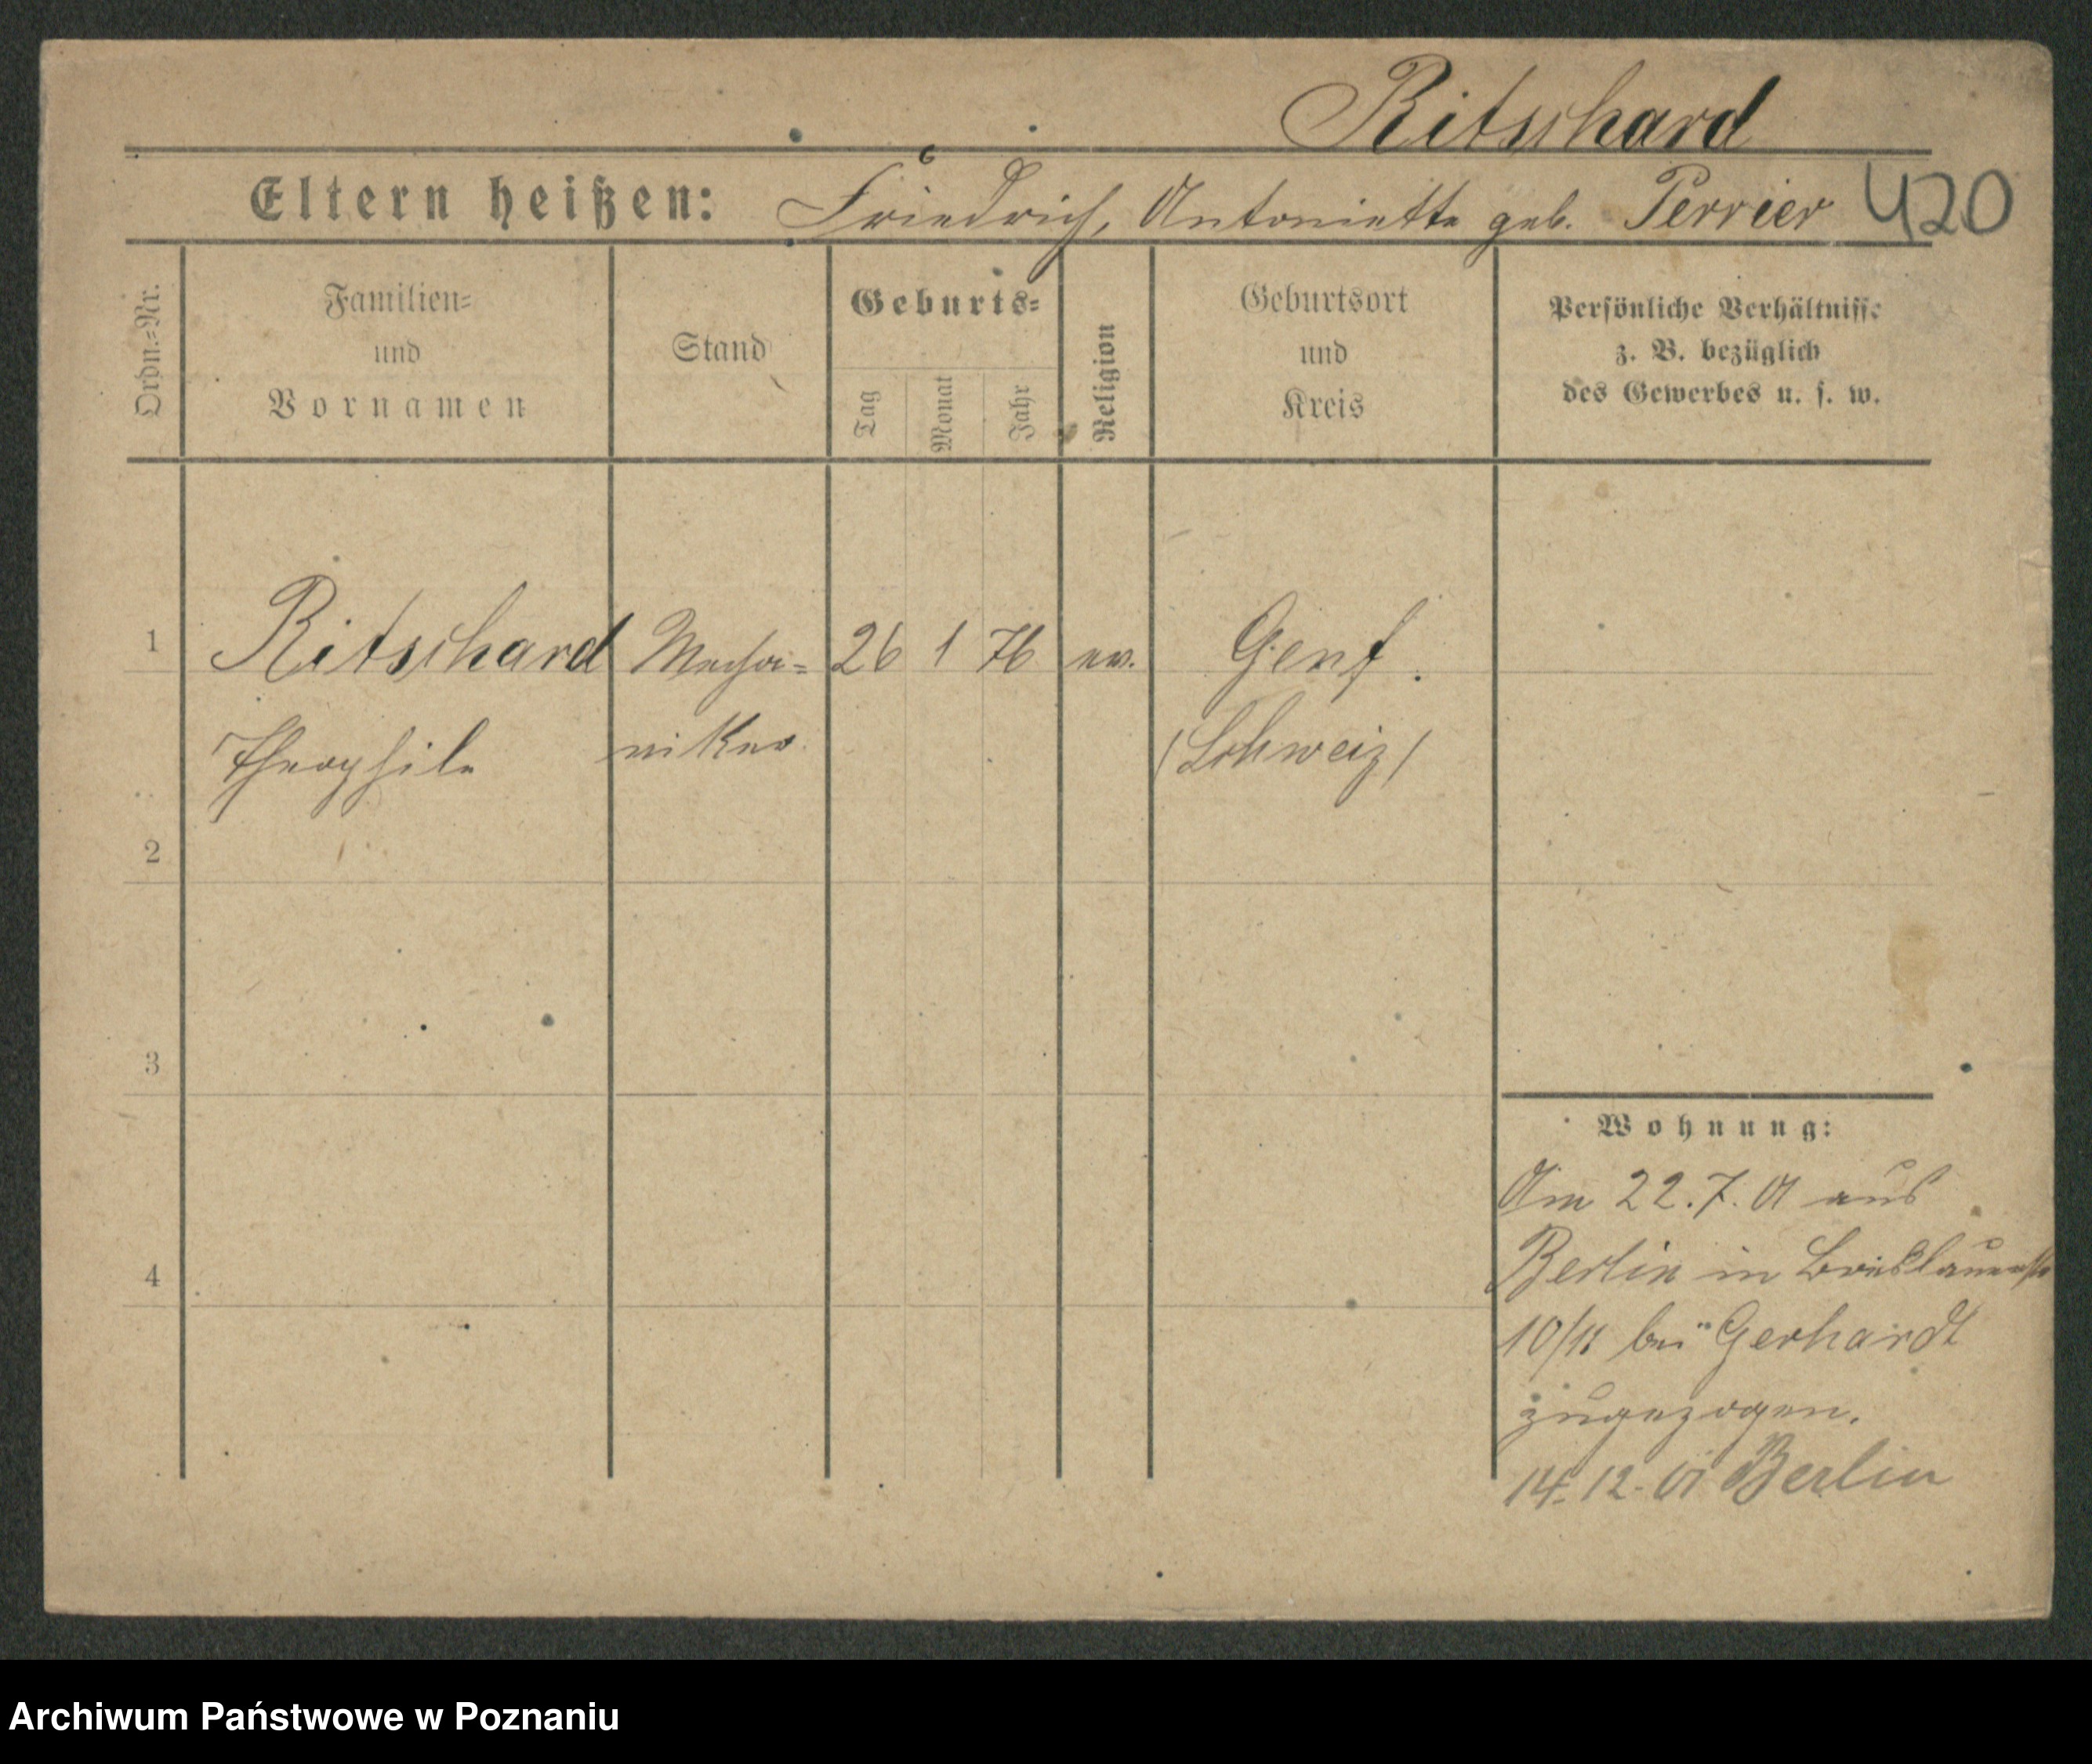 Ritschard
Eltern heißen: Friedrich, Antoniette geb. Perrier 420
Ordn.=Nr.
Familien=
und
Vornamen
Stand
Geburts=
Tag
Monat
Jahr
Religion
Geburtsort
und
Kreis
Persönliche Verhältnisse
z. B. bezüglich
des Gewerbes u. s. w.
1 Ritschard Mecha= 26 1 76 ev. Genf.
Theophile niker (Schweiz)
2
3
4
Wohnung:
Am 22.7.01 aus
Berlin in Breslauerstr
10/11 bei Gerhardt
zugezogen.
14.12.01 Berlin
Archiwum Państwowe w Poznaniu